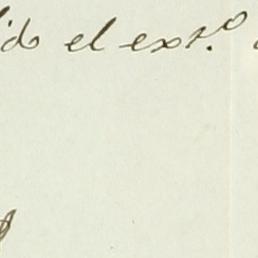 ido el exs.º